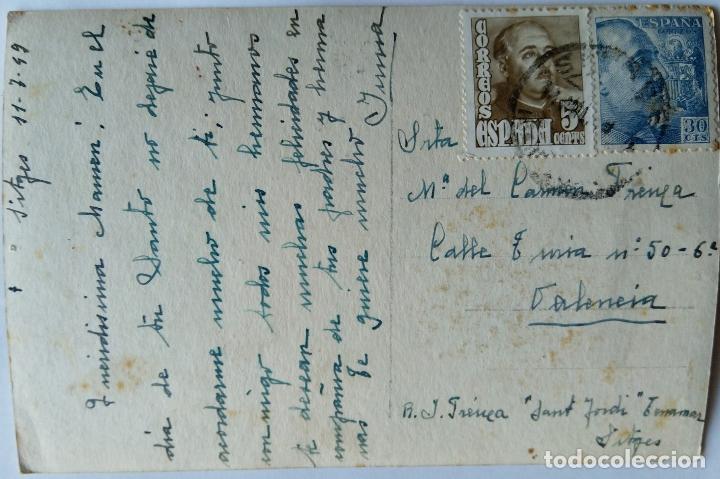 + Sitges 11-7-49
Queridisima Mamen; En el
dia de tu Santo no dejaré de
acordarme mucho de ti, junto
conmigo todos mis hermanos
te desean muchas felicidades en
compañia de tus padres y herma
nas Te quiere mucho
CORREOS
5
ESPAÑA CENTS
ESPAÑA
CORREOS
30
CTS
Srta
Mª del Carmen Trenga
Calle Turia nº 50-6ª
Valencia
R. J. Trenga "Sant Jordi" Terramar
Sitges
todocoleccion.net